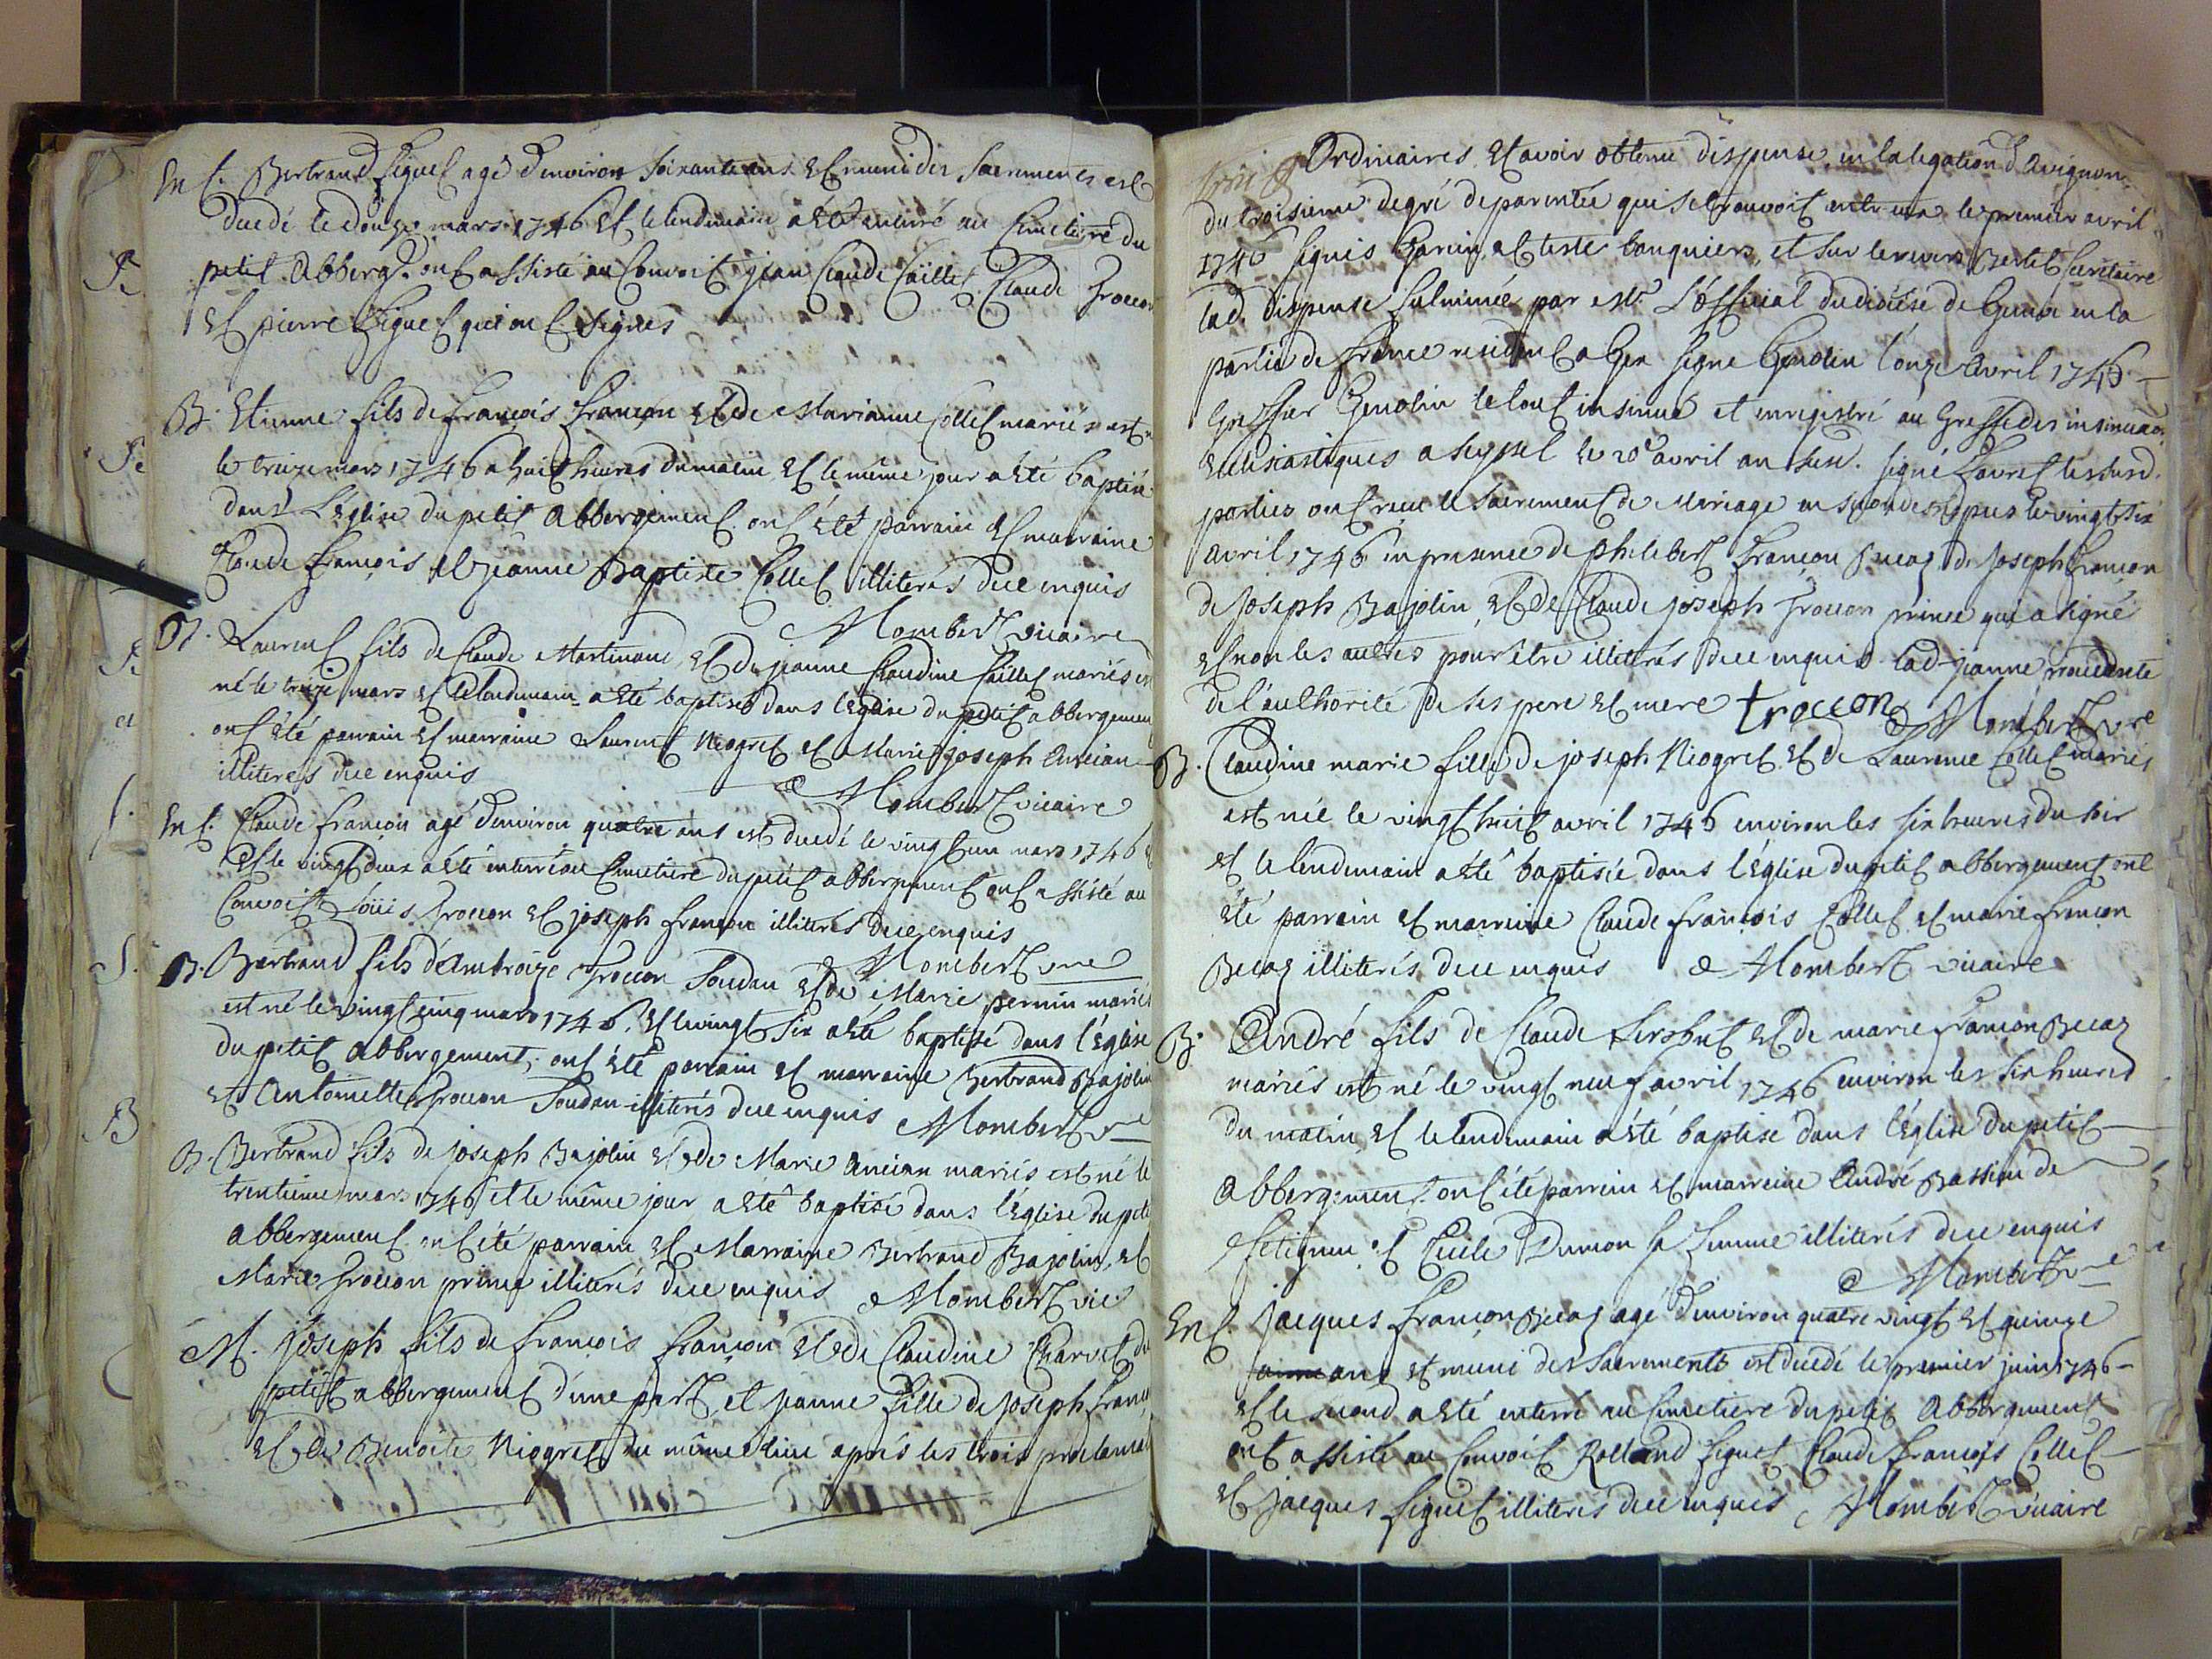 Ent. Bertrand Siguet agé d'environ soixante ans et muni des Sacrements est
decedé le douze mars 1746 et le lendemain a été enterré au Cimetiere du
petit Abberg.t ont assisté au Convoit jean Claude Caillet Claude Troccon
et pierre Siguet qui ont signés
B. Etienne fils de françois françon et de Marianne Collet mariés est né
le treize mars 1746 a huit heures du matin et le même jour a été baptisé
dans L'église du petit Abbergement. ont été parrain et marraine
Claude françois et jeanne Baptiste Collet illiterés de ce enquis
Mombert vicaire
B. Laurent fils de Claude Martinand et de jeanne Claudine Caillet mariés est
né le treize mars et le lendemain a été baptisé dans l'église du petit abbergement
ont été parrain et marraine Laurent Niogret et Marie joseph Ancian
illiterés de ce enquis
Mombert vicaire
Ent. Claude françon agé d'environ quatre ans est decedé le vingt un mars 1746
et le vingt deux a été enterré au Cimetiere du petit abbergement ont assisté au
Convoit Loüis Troccon et joseph françon illiterés de ce enquis
Mombert vre
B. Bertrand fils d'Ambroize Troccon Soudan et de Marie pernin mariés
est né le vingt cinq mars 1746. et le vingt six a été baptisé dans l'église
du petit abbergement; ont été parrain et marraine Bertrand Bajolin
et Antoinette Troccon Soudan illiterés de ce enquis Mombert vre
B. Bertrand fils de joseph Bajolin et de Marie Ancian mariés est né le
trentieme mars 1746 et le même jour a été baptisé dans l'église du petit
abbergement. ont été parrain et Marraine Bertrand Bajolin, et
Marie Troccon prince illiterés de ce enquis Mombert vic
M. joseph fils de françois françon et de Claudine Charvet du
petit abbergement d'une part, et jeanne fille de joseph franç
et de Benoite Niogret du même lieu aprés les trois proclamat
Ordinaires et avoir obtenu dispense en la legation d'Avignon
du troisieme degré de parentée qui se trouvoit entr'eux le premier avril
1746 signés Garcin, et teste banquiers, et sur le revers Bertet secretaire
lad. dispense fulminée par Mr. L'official du diocése de Geneve en la
partie de france resident a Gex signé Genolin l'onze Avril 1746.
Greffier Genolin le tout insinué et enregistré au Greffe des insinuaons
ecclesiastiques a seyssel le 20e avril an susd. signé Lavret les susd.
parties ont reçu le Sacrement de Mariage en secondes le vingt six
avril 1746 en presence de philebert françon Becaz de joseph françon
de joseph Bajolin, et de Claude joseph Troccon prince qui a signé
et non les autres pour être illiterés de ce enquis lad. jeanne procedante
de l'authorité de ses pere et mere troccon Mombert vre
B. Claudine marie fille de joseph Niogret et de Laurence Collet mariés
est née le vingt huit avril 1746 environ les six heures du soir
et le lendemain a été baptisée dans l'église du petit abbergement ont
été parrain et marraine Claude françois Collet et marie françon
Becaz illiterés de ce enquis Mombert vicaire
B. André fils de Claude et de marie françon Becaz
mariés est né le vingt neuf avril 1746 environ les six heures
du matin et le lendemain a été baptisé dans l'église du petit
Abbergement ont été parrain et marraine André Bassieu de
et Cecile Dumon sa femme illiterés de ce enquis
Mombert vre
Ent. jacques françon Becaz agé d'environ quatre vingt et quinze
ans et muni des Sacrements est decedé le premier juin 1746
et le second a été enterré au Cimetiere du petit Abbergement
ont assisté au Convoit Rolland Siguet Claude françois Collet
et jacques Siguet illiterés de ce enquis Mombert vicaire